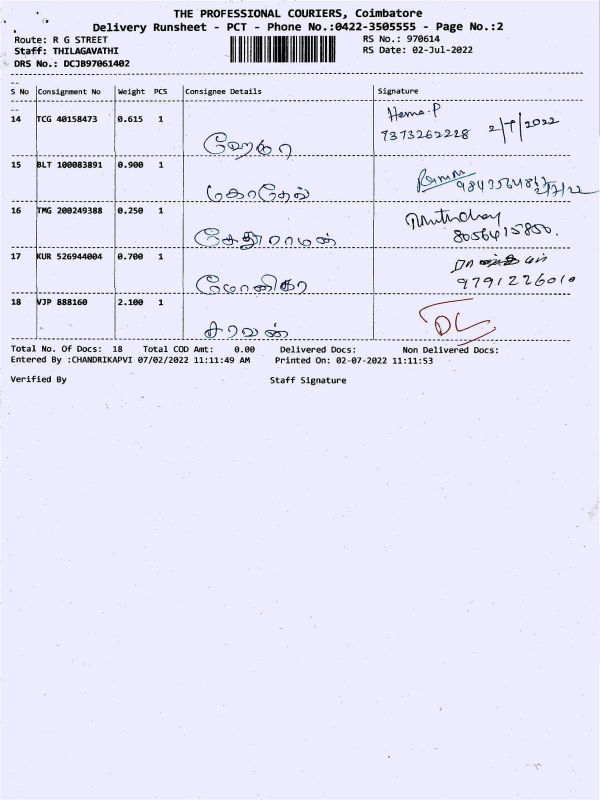 THE PROFESSIONAL COURIERS, Coimbatore
Delivery Runsheet - PCT - Phone No.:0422-3505555 - Page No.:2
Route: R G STREET RS No.: 970614
Staff: THILAGAVATHI RS Date: 02-Jul-2022
DRS No.: DCJB97061402
S No Consignment No Weight PCS Consignee Details Signature
14 TCG 40158473 0.615 1 Hema.P
ஹேமா 7373262228 2/7/2022
15 BLT 100083891 0.900 1
2/7/22
16 TMG 200249388 0.250 1
சேதுராமன் 8056415850.
17 KUR 526944004 0.700 1
மோனிகா 9791226010
18 VJP 888160 2.100 1 DC
சரவன்
Total No. Of Docs: 18 Total COD Amt: 0.00 Delivered Docs: Non Delivered Docs:
Entered By :CHANDRIKAPVI 07/02/2022 11:11:49 AM Printed On: 02-07-2022 11:11:53
Verified By Staff Signature